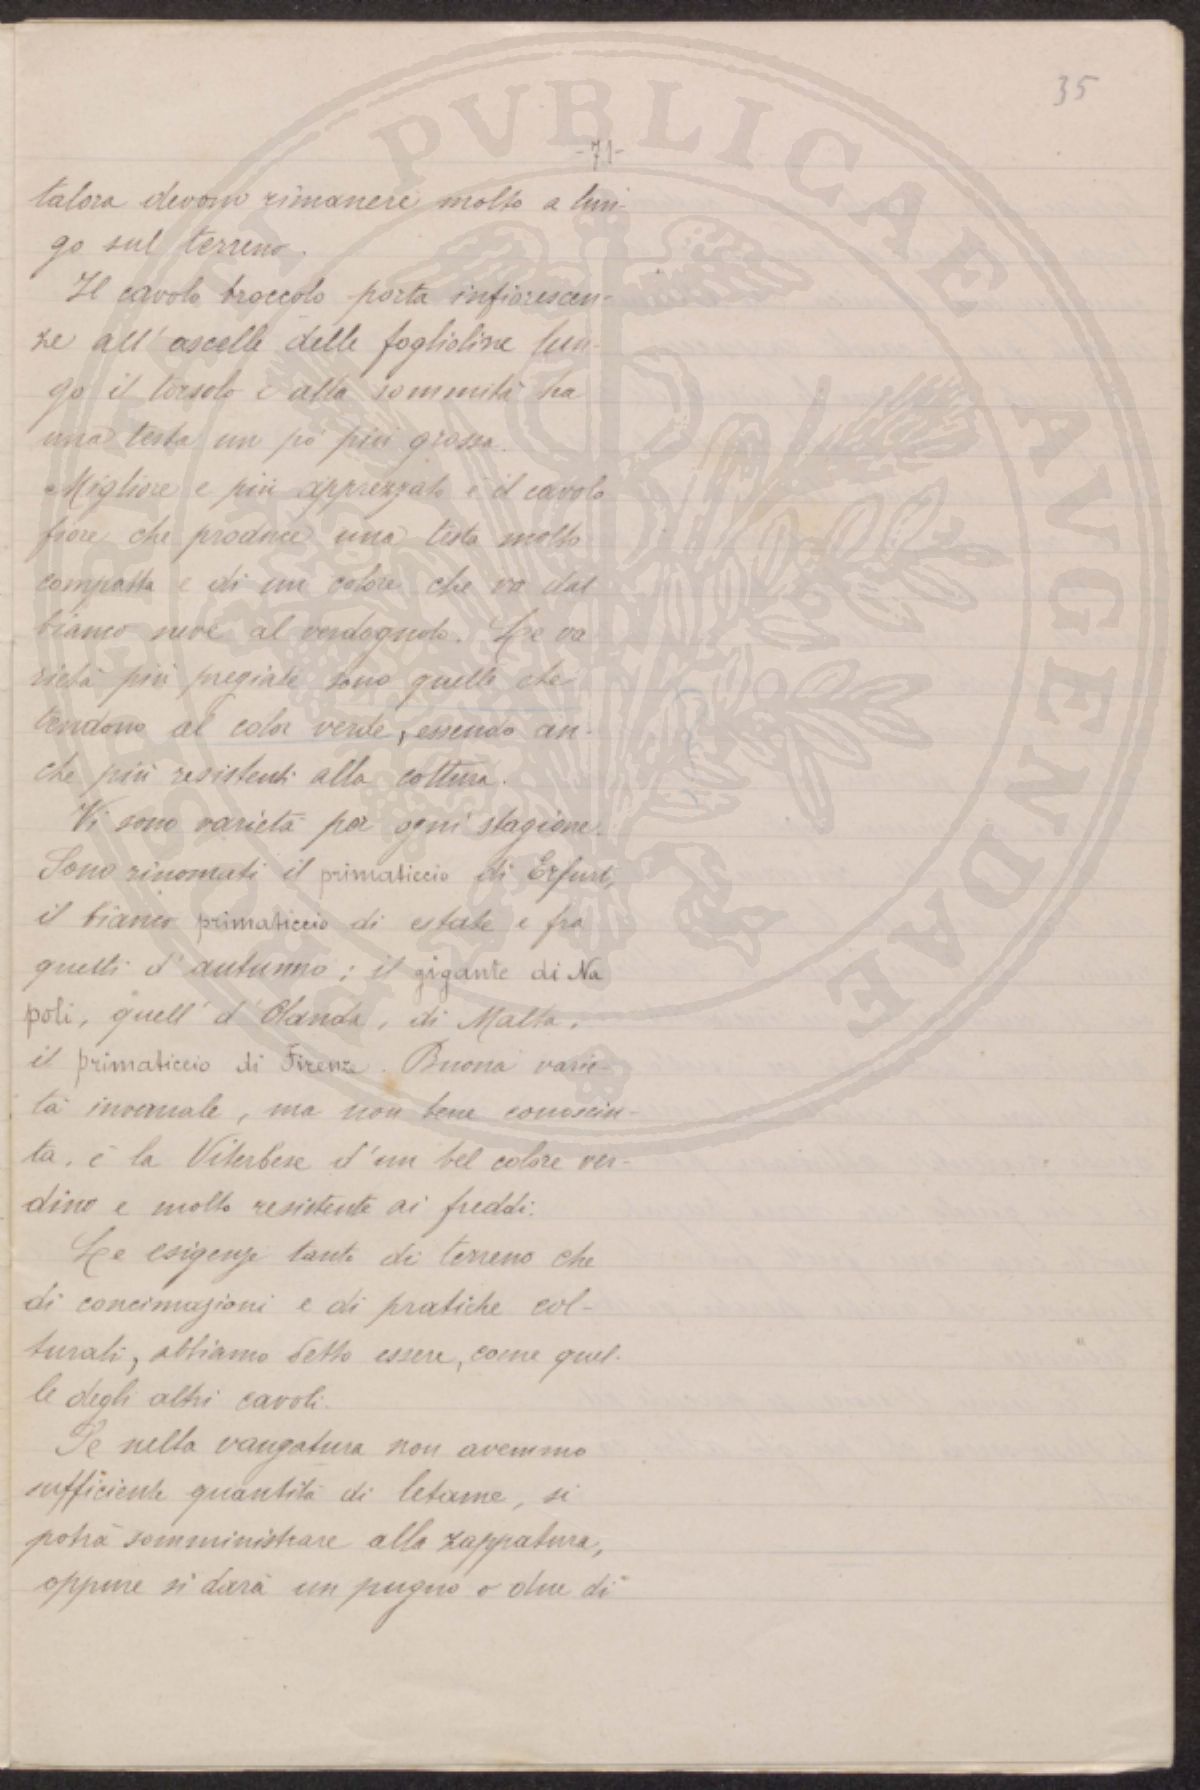 35
-71-
talora devono rimanere molto a lun-
go sul terreno.
Il cavolo broccolo porta infiorescen-
ze all'ascelle delle foglioline lun-
go il torsolo e alla sommità ha
una testa un pò più grossa.
Migliore e più apprezzato è il cavolo
fiore che produce una testa molto
compatta e di un colore che va dal
bianco neve al verdognolo. Le va
rietà più pregiate sono quelle che
tendono al color verde, essendo an-
che più resistenti alla cottura.
Vi sono varietà per ogni stagione.
Sono rinomati il primaticcio di Erfurt,
il bianco primaticcio di estate e fra
quelli d'autunno: il gigante di Na
poli, quell'd'Olanda, di Malta,
il primaticcio di Firenze. Buona varie-
tà invernale, ma non bene conosciu-
ta, è la Viterbese d'un bel colore ver-
dino e molto resistente ai freddi.
Le esigenze tanto di terreno che
di concimazioni e di pratiche col-
turali, abbiamo detto essere, come quel-
le degli altri cavoli.
Se nella vangatura non avemmo
sufficiente quantità di letame, si
potrà somministrare alla zappatura,
oppure si darà un pugno o due di
PVBLICAE AVGENDAE